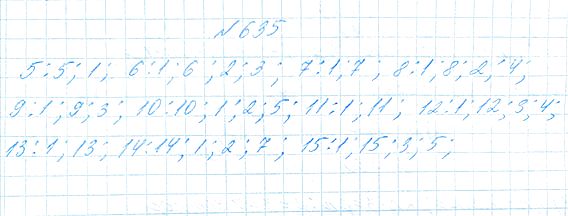 № 635
5:5; 1; 6:1; 6; 2; 3; 7:1; 7; 8:1; 8; 2; 4;
9:1; 9; 3; 10:10; 1; 2; 5; 11:1; 11; 12:1; 12; 3; 4;
13:1; 13; 14:14; 1; 2; 7; 15:1; 15; 3; 5;